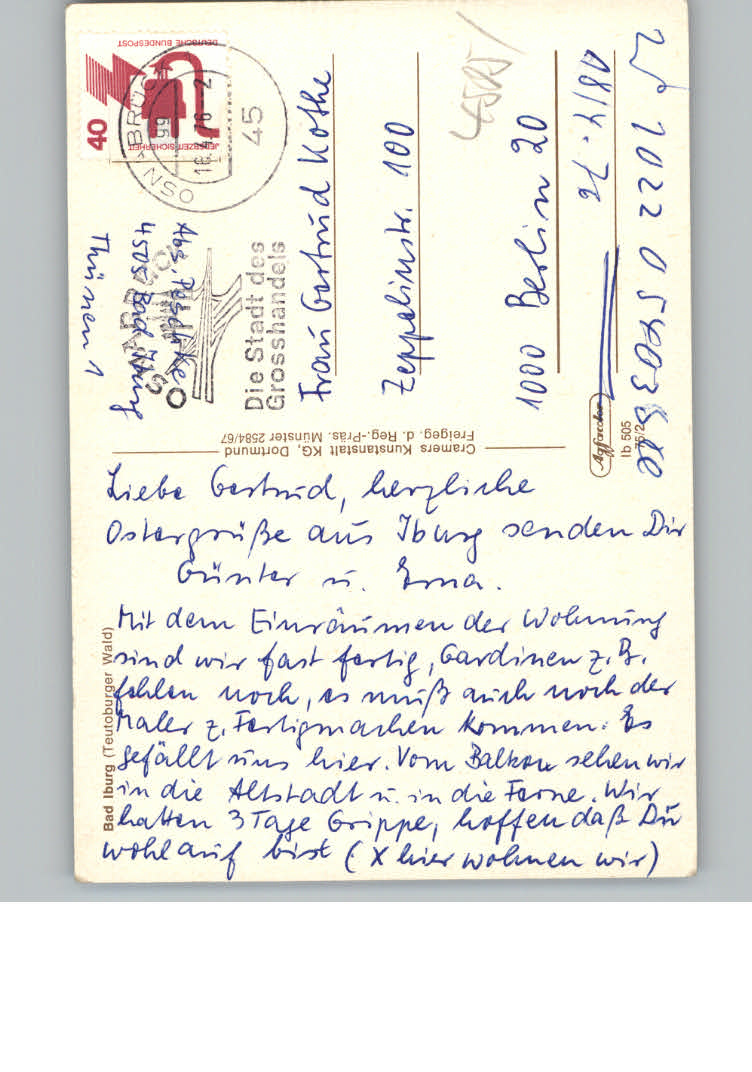 Liebe Gertrud, herzliche
Ostergrüße aus Iburg senden Dir
Günter u. Erna.
Mit dem Einräumen der Wohnung
sind wir fast fertig, Gardinen z. B.
fehlen noch, es muß auch noch der
Maler z. Fertigmachen kommen. Es
gefällt uns hier. Vom Balkon sehen wir
in die Altstadt u. in die Ferne. Wir
hatten 3 Tage Grippe, hoffen daß Du
wohlauf bist (X hier wohnen wir)
Bad Iburg (Teutoburger Wald)
Cramers Kunstanstalt KG, Dortmund
Freigeg. d. Reg.-Präs. Münster 2584/67
Abs. Peschke
4505 Bad Iburg
Thünen 1
Frau Gertrud Kothe
Zeppelinstr. 100
1000 Berlin 20
DEUTSCHE BUNDESPOST
40
JEDERZEIT SICHERHEIT
OSNABRÜCK
45
OSNABRÜCK
Die Stadt des
Grosshandels
Ib 505
75/2